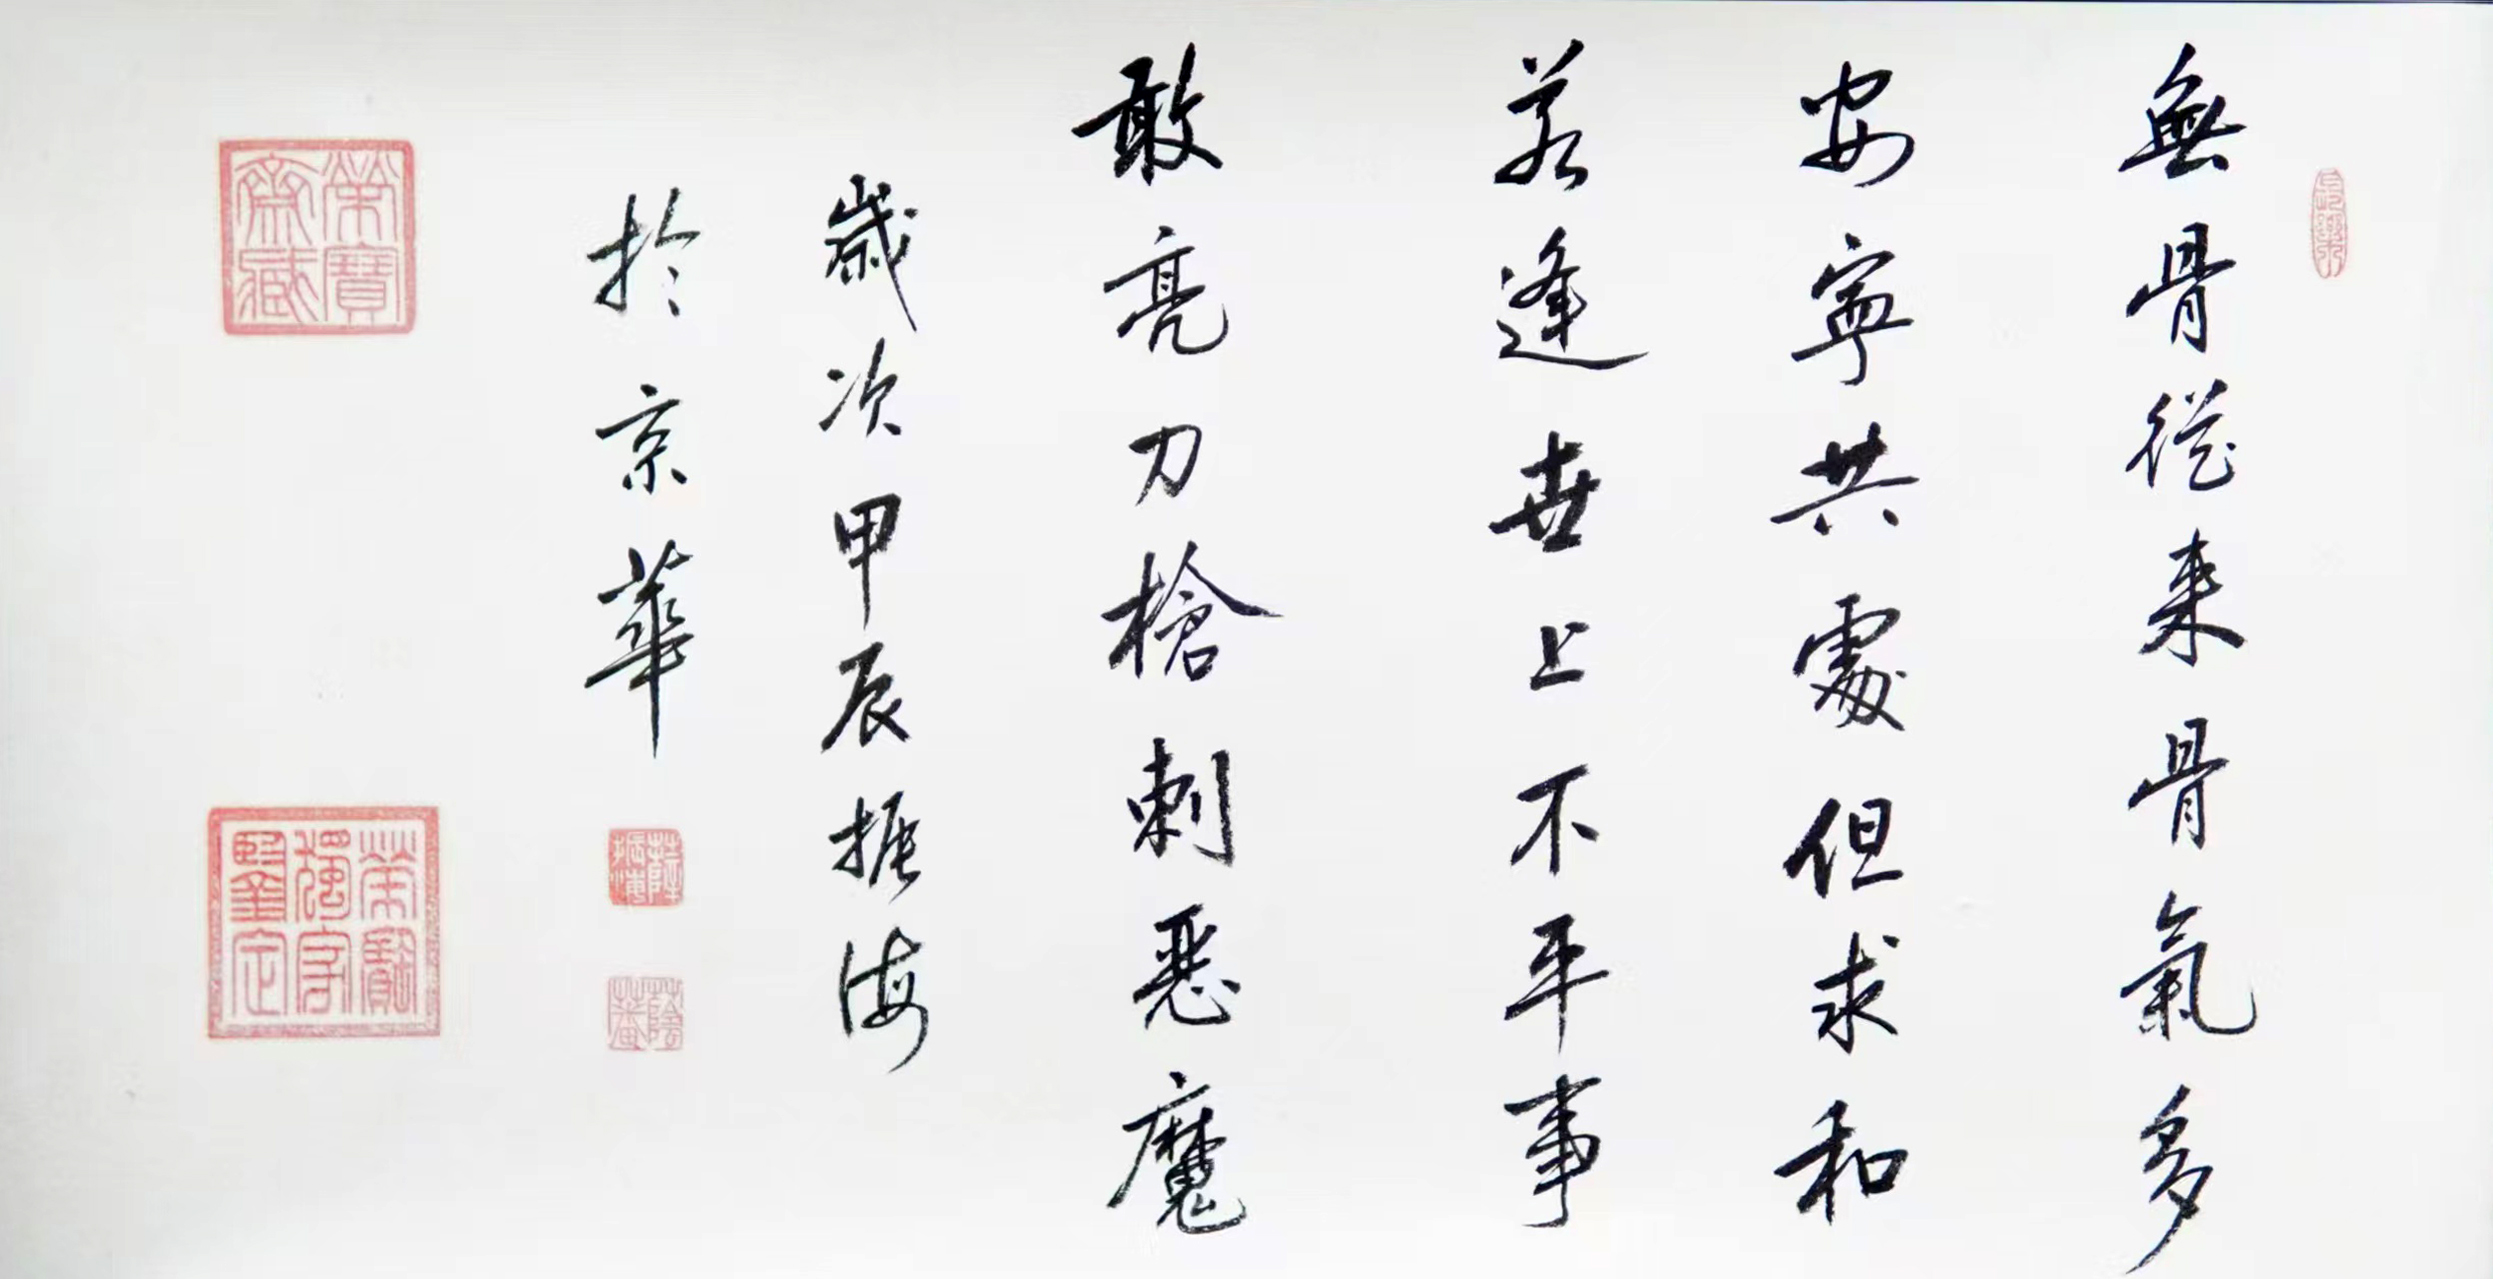 無骨從来骨氣多
安寧共處但求和
若逢世上不平事
敢亮刀槍刺惡魔
歲次甲辰振海
於京華
榮寶齋藏
薛振海